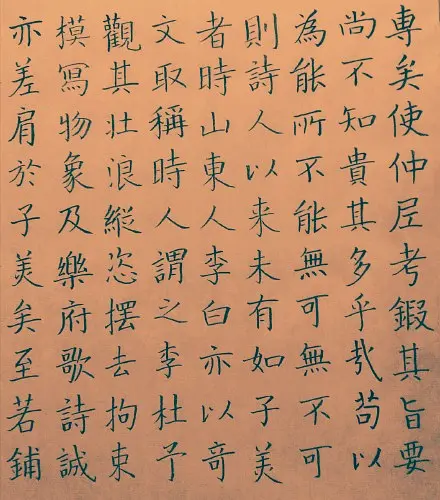 専矣使仲尼考鍜其旨要
尚不知貴其多乎㢤苟以
為能所不能無可無不可
則詩人以来未有如子美
者時山東人李白亦以奇
文取稱時人謂之李杜予
觀其壮浪縱恣擺去拘束
模冩物象及樂府歌詩誠
亦差肩於子美矣至若鋪